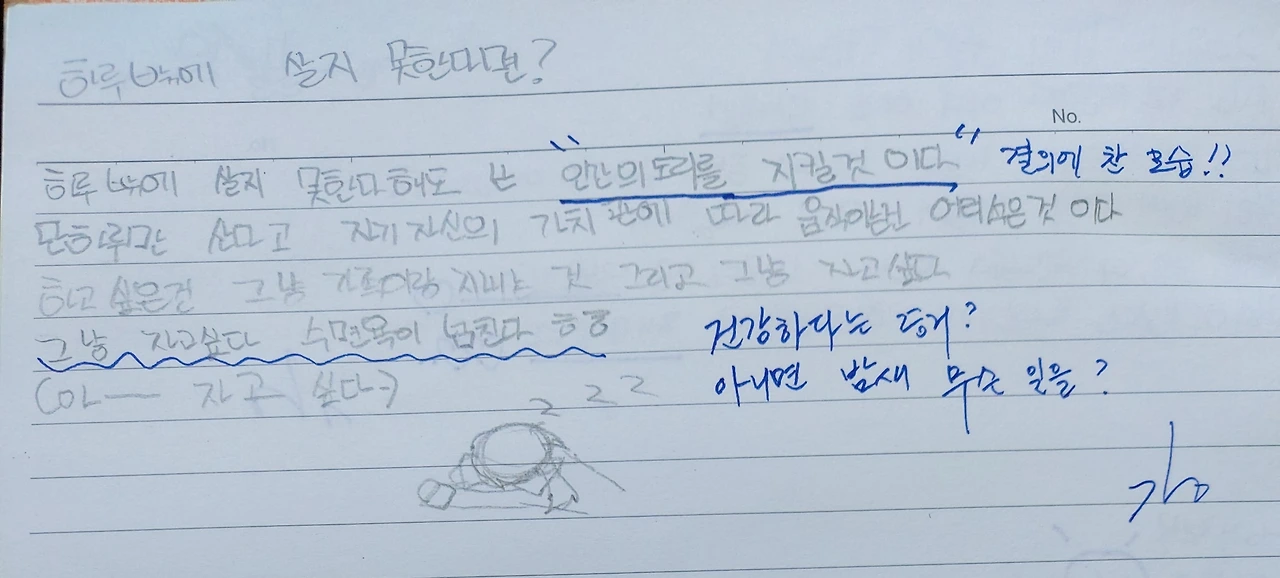 하루밖에 살지 못한다면?
No.
하루 밖에 살지 못한다 해도 는 "인간의 도리를 지킬것 이다" 결의에 찬 모습!!
단하루만 산다고 자기 자신의 가치관에 따라 움직이는건 어리석은것 이다
하고 싶은건 그냥 가족이랑 지내는 것 그리고 그냥 자고싶다
그냥 자고싶다 수면욕이 넘친다 ㅎㅎ 건강하다는 증거?
(아ㅡ 자고 싶다~) zzz 아니면 밤새 무슨 일을?